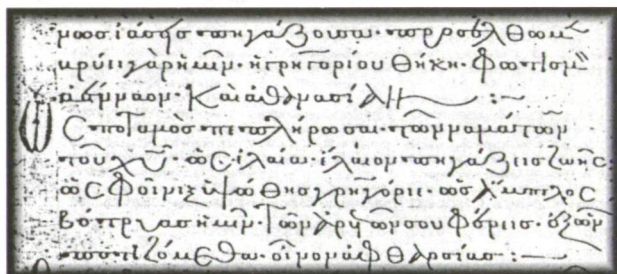 ἰάσεις πηγάζουσα· προσέλθωμ
βρύει γὰρ ἡμῖν· ἡ γρηγορίου θήκη· φωτισμ
ἀένναον· Καὶ ἀθανασίαν :-
Ὡς ποταμὸς πεπλήρωσαι· τῶν ναμάτων
τοῦ χυ· ὡς ἐλαία ἔλαιον πηγάζεις ζωῆς·
ὡς φοῖνιξ ὑψώθης γρηγόριε· ὡς ἄμπελος
βότρυας ἡμῖν· τῶν ἀρετῶν σου φέρεις· ἐξ ὧν
ποτιζόμεθα· οἶνον ἀφθαρσίας :-